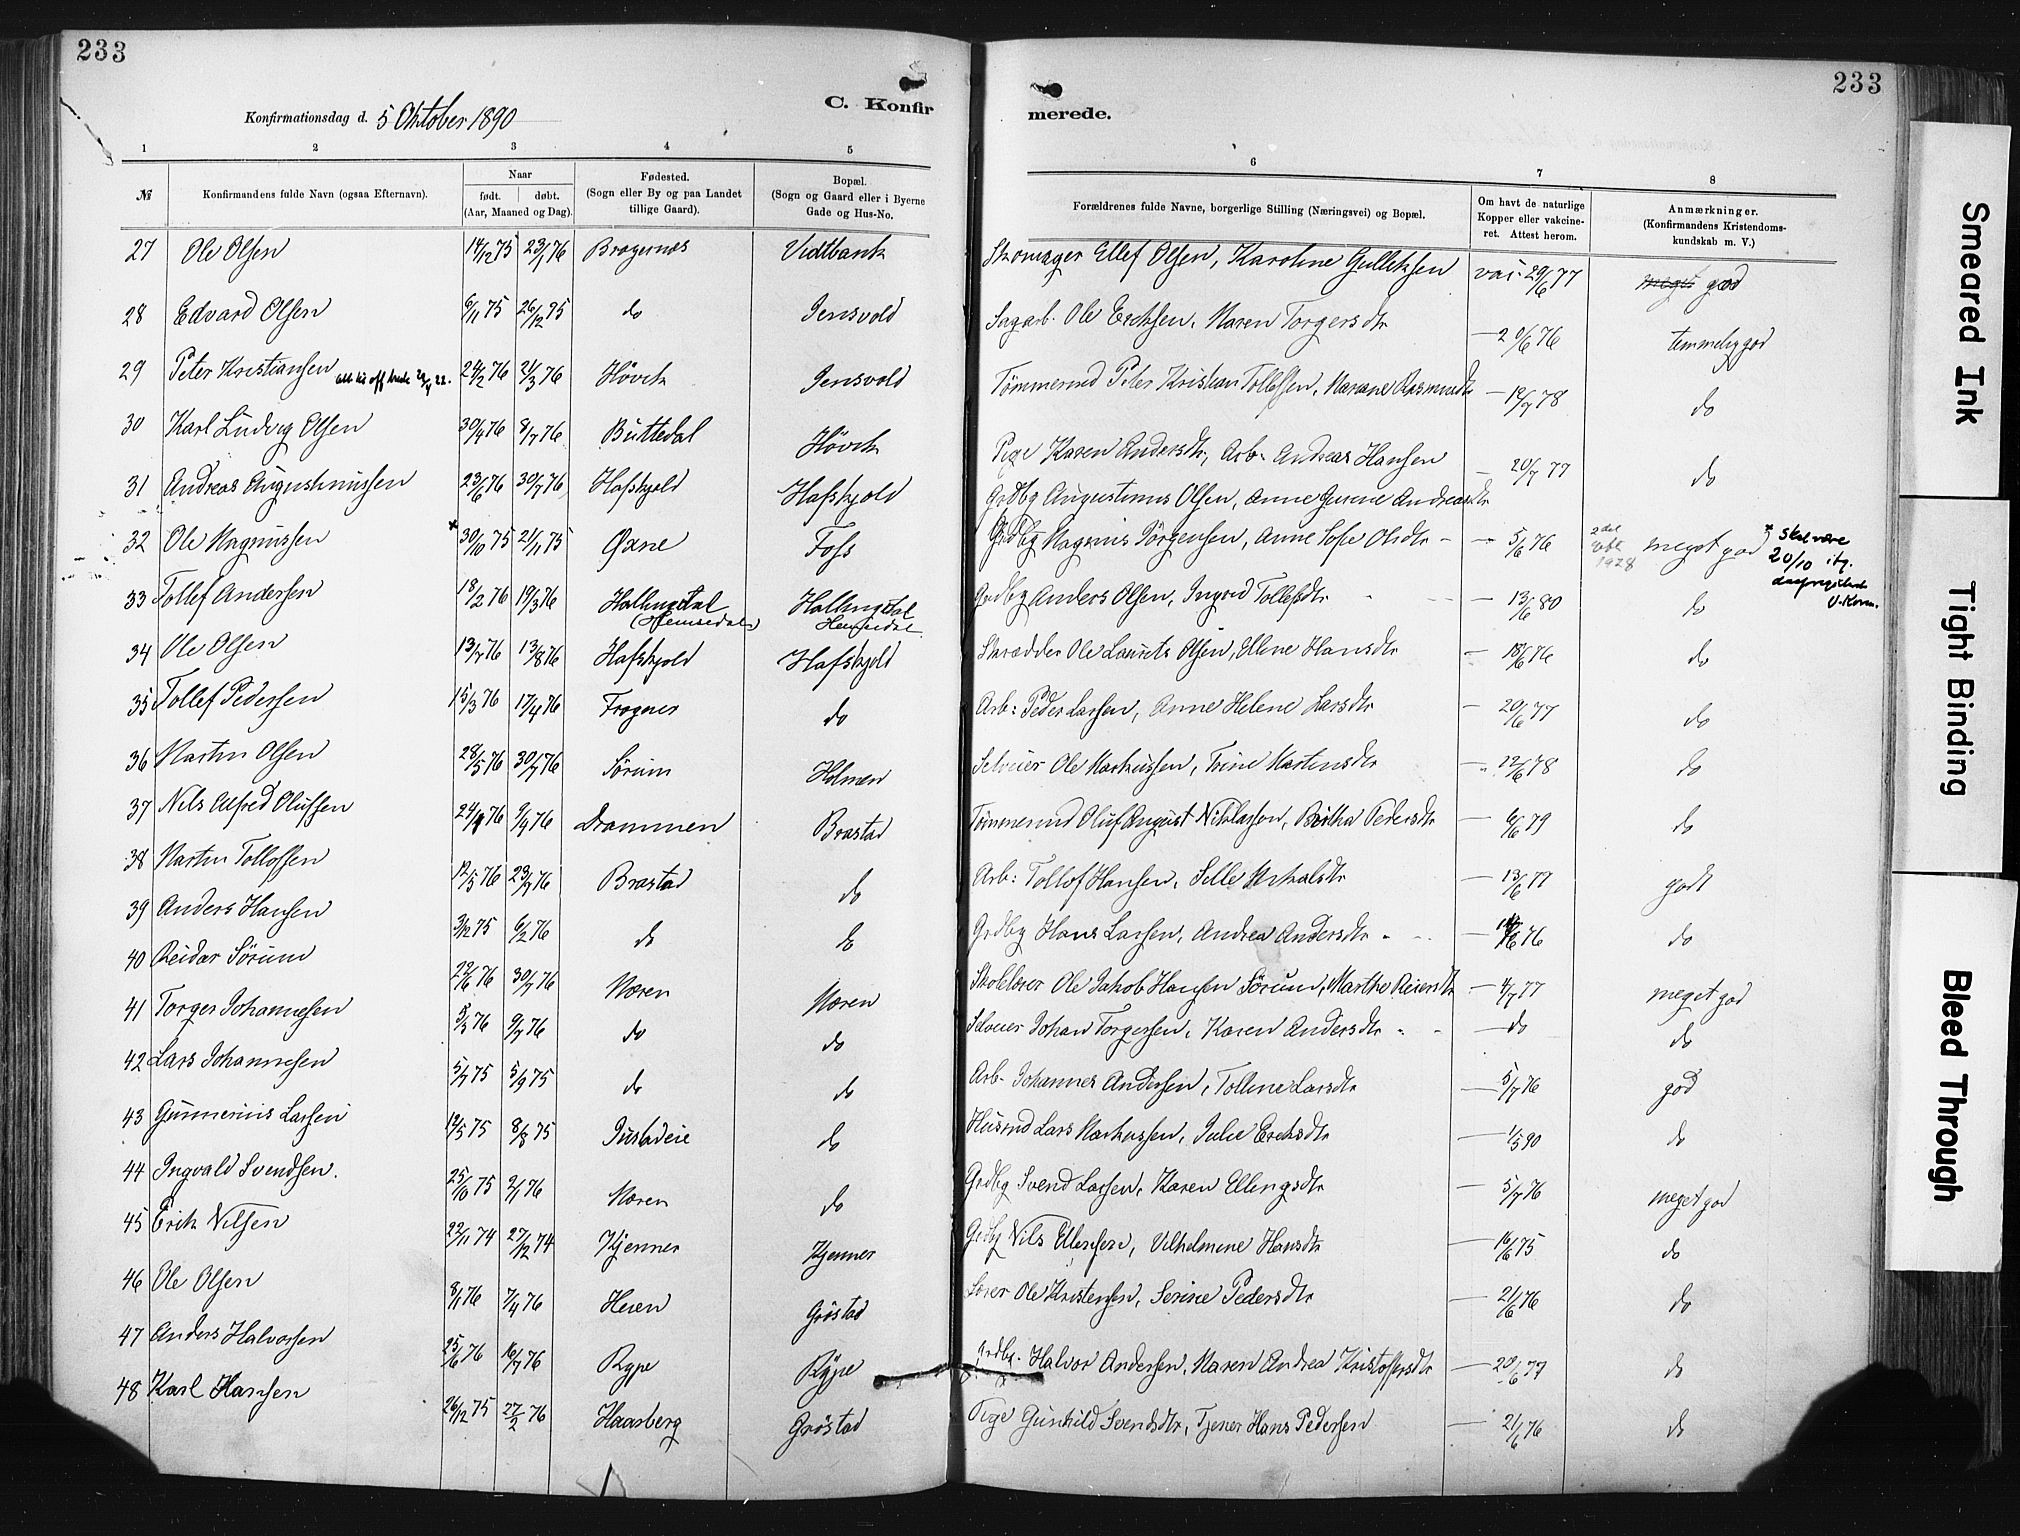 233
233
Konfirmationsdag d. 5 Oktober 1890
C. Konfir
merede.
1 2 3 4 5 6 7 8
№ Konfirmandens fulde Navn (ogsaa Efternavn). Naar født. døbt. (Aar, Maaned og Dag). Fødested. (Sogn eller By og paa Landet tillige Gaard). Bopæl. (Sogn og Gaard eller i Byerne Gade og Hus-No. Forældrenes fulde Navne, borgerlige Stilling (Næringsvei) og Bopæl. Om havt de naturlige Kopper eller vakcineret. Attest herom. Anmærkninger. (Konfirmandens Kristendomskundskab m. V.)
27 Ole Olsen 14/12 75 23/1 76 Bragernæs Vidtbank Skomager Ellef Olsen, Karoline Gulliksen vac. 29/6 77 meget god
28 Edvard Olsen 6/11 75 26/12 75 do Jensvold Sagarb. Ole Eriksen, Maren Torgersdtr — 20/6 76 temmelig god
29 Peter Kristiansen 24/2 76 21/3 76 Høvik Jensvold Tømmermd Peter Kristian Tollefsen, — 12/7 78 do
30 Karl Ludvig Olsen 30/4 76 8/7 76 Buttedal Høvik Pige Karen Andersdtr, Arb. Andreas Hansen — 20/7 77 do
31 Andreas Augustinussen 23/6 76 30/7 76 Hafskjold Hafskjold Grdbg Augustinus Olsen, Anne Andreasdtr
32 Ole Magnussen × 30/10 75 21/11 75 Øxne Foss Grdbg Magnus Jørgensen, Anne Sofie Olsdtr — 5/6 76 1928 meget god × skal være 20/10
33 Tollef Andersen 18/2 76 19/3 76 Hallingdal (Hemsedal) Hallingdal Hemsedal Grdbg Anders Olsen, Ingrid Tollefsdtr — 13/6 80 do
34 Ole Olsen 13/7 76 13/8 76 Hafskjold Hafskjold Skrædder Ole Laurits Olsen, Ellene Hansdtr — 18/6 76 do
35 Tollef Pedersen 15/3 76 17/4 76 Frogner do Arb: Peder Larsen, Anne Helene Larsdtr — 20/6 77 do
36 Martin Olsen 28/5 76 30/7 76 Sørum Holmen Selveier Ole Markussen, Trine Martensdtr — 12/6 78 do
37 Nils Alfred Olufsen 24/1 76 9/4 76 Drammen Brastad Tømmermd Oluf August Niklassen, Pedersdtr — 6/6 79 do
38 Martin Tollofsen 12/5 76 23/7 76 Brastad do Arb: Tollof Hansen, — 13/6 77 godt
39 Anders Hansen 3/12 75 6/2 76 do do Grdbg Hans Larsen, Andrea Andersdtr — 76 do
40 Reidar Sørum 22/6 76 30/7 76 Mæren Mæren Skolelærer Ole Jakob Hansen Sørum, Marthe Reiersdtr — 4/7 77 meget god
41 Torger Johannesen 5/3 76 9/7 76 do do Selveier Johan Torgersen, Karen Andersdtr — do do
42 Lars Johannesen 5/7 75 5/9 75 do do Arb. Johannes Andersen, Tolline Larsdtr — 5/7 76 god
43 Gunnerius Larsen 12/5 75 8/8 75 do Husmd Lars Markussen, Julie Eriksdtr — 1/5 90 do
44 Ingvald Svendsen. 25/10 75 9/1 76 Mæren do Grdbg Svend Larsen, Karen Ellingsdtr — 5/7 76 meget god
45 Erik Nilsen 22/11 74 27/12 74 Kjenner Kjenner Grdbg Nils Ellensen, Vilhelmine Hansdtr — 16/6 75 do
46 Ole Olsen 8/1 76 7/4 76 Heien Grøstad Ole Kristensen, Serine Pedersdtr — 21/6 76 do
47 Anders Halvorsen 25/6 76 16/7 76 Rype Rype Grdbg. Halvor Andersen, Maren Andrea Kristoffersdtr — 20/6 77 do
48 Karl Hansen 26/12 75 27/2 76 Haarberg Grøstad Pige Gunhild Svendsdtr, Tjener Hans Pedersen — 21/6 76 do
Smeared Ink
Tight Binding
Bleed Through